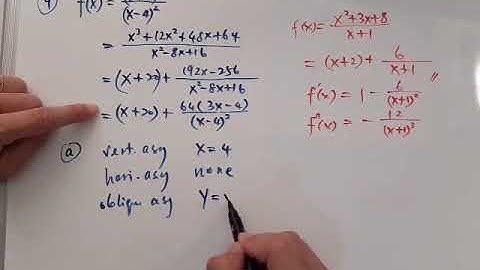 f(x) =
(x-4)²
= x³+12x²+48x+64 / x²-8x+16
= (x+20) + 192x-256 / x²-8x+16
= (x+20) + 64(3x-4) / (x-4)²
(a) vert. asy x=4
hori. asy none
oblique asy Y=
f(x) = x²+3x+8 / x+1
= (x+2) + 6 / x+1 //
f'(x) = 1 - 6 / (x+1)²
f''(x) = - 12 / (x+1)³